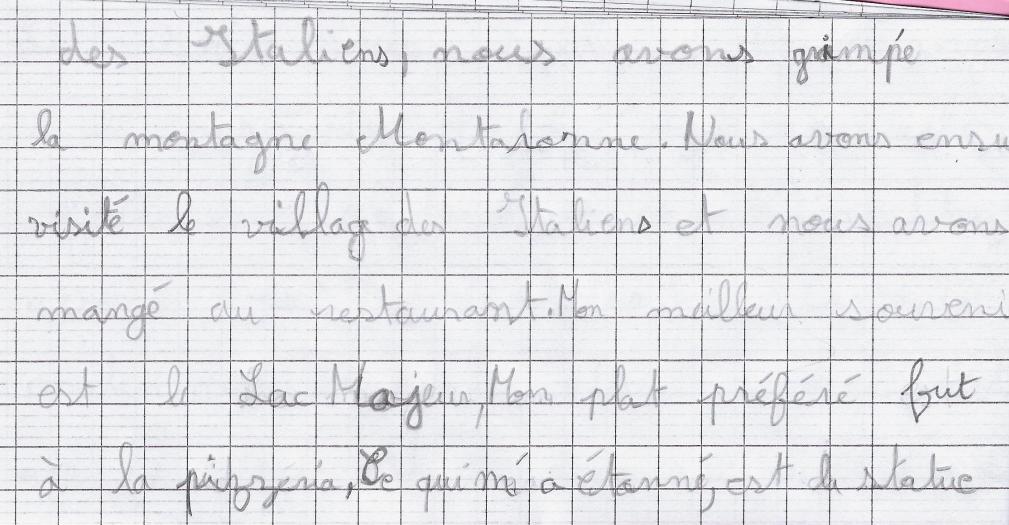 des Italiens, nous avons grimpé
la montagne Montaronne. Nous avons ensu
visité le villag des Italiens et nous avons
mangé au restaurant. Mon meilleur souveni
est le Lac Majeur, Mon plat préféré fut
à la pizzeria, Ce qui mé a étanné, est de statue